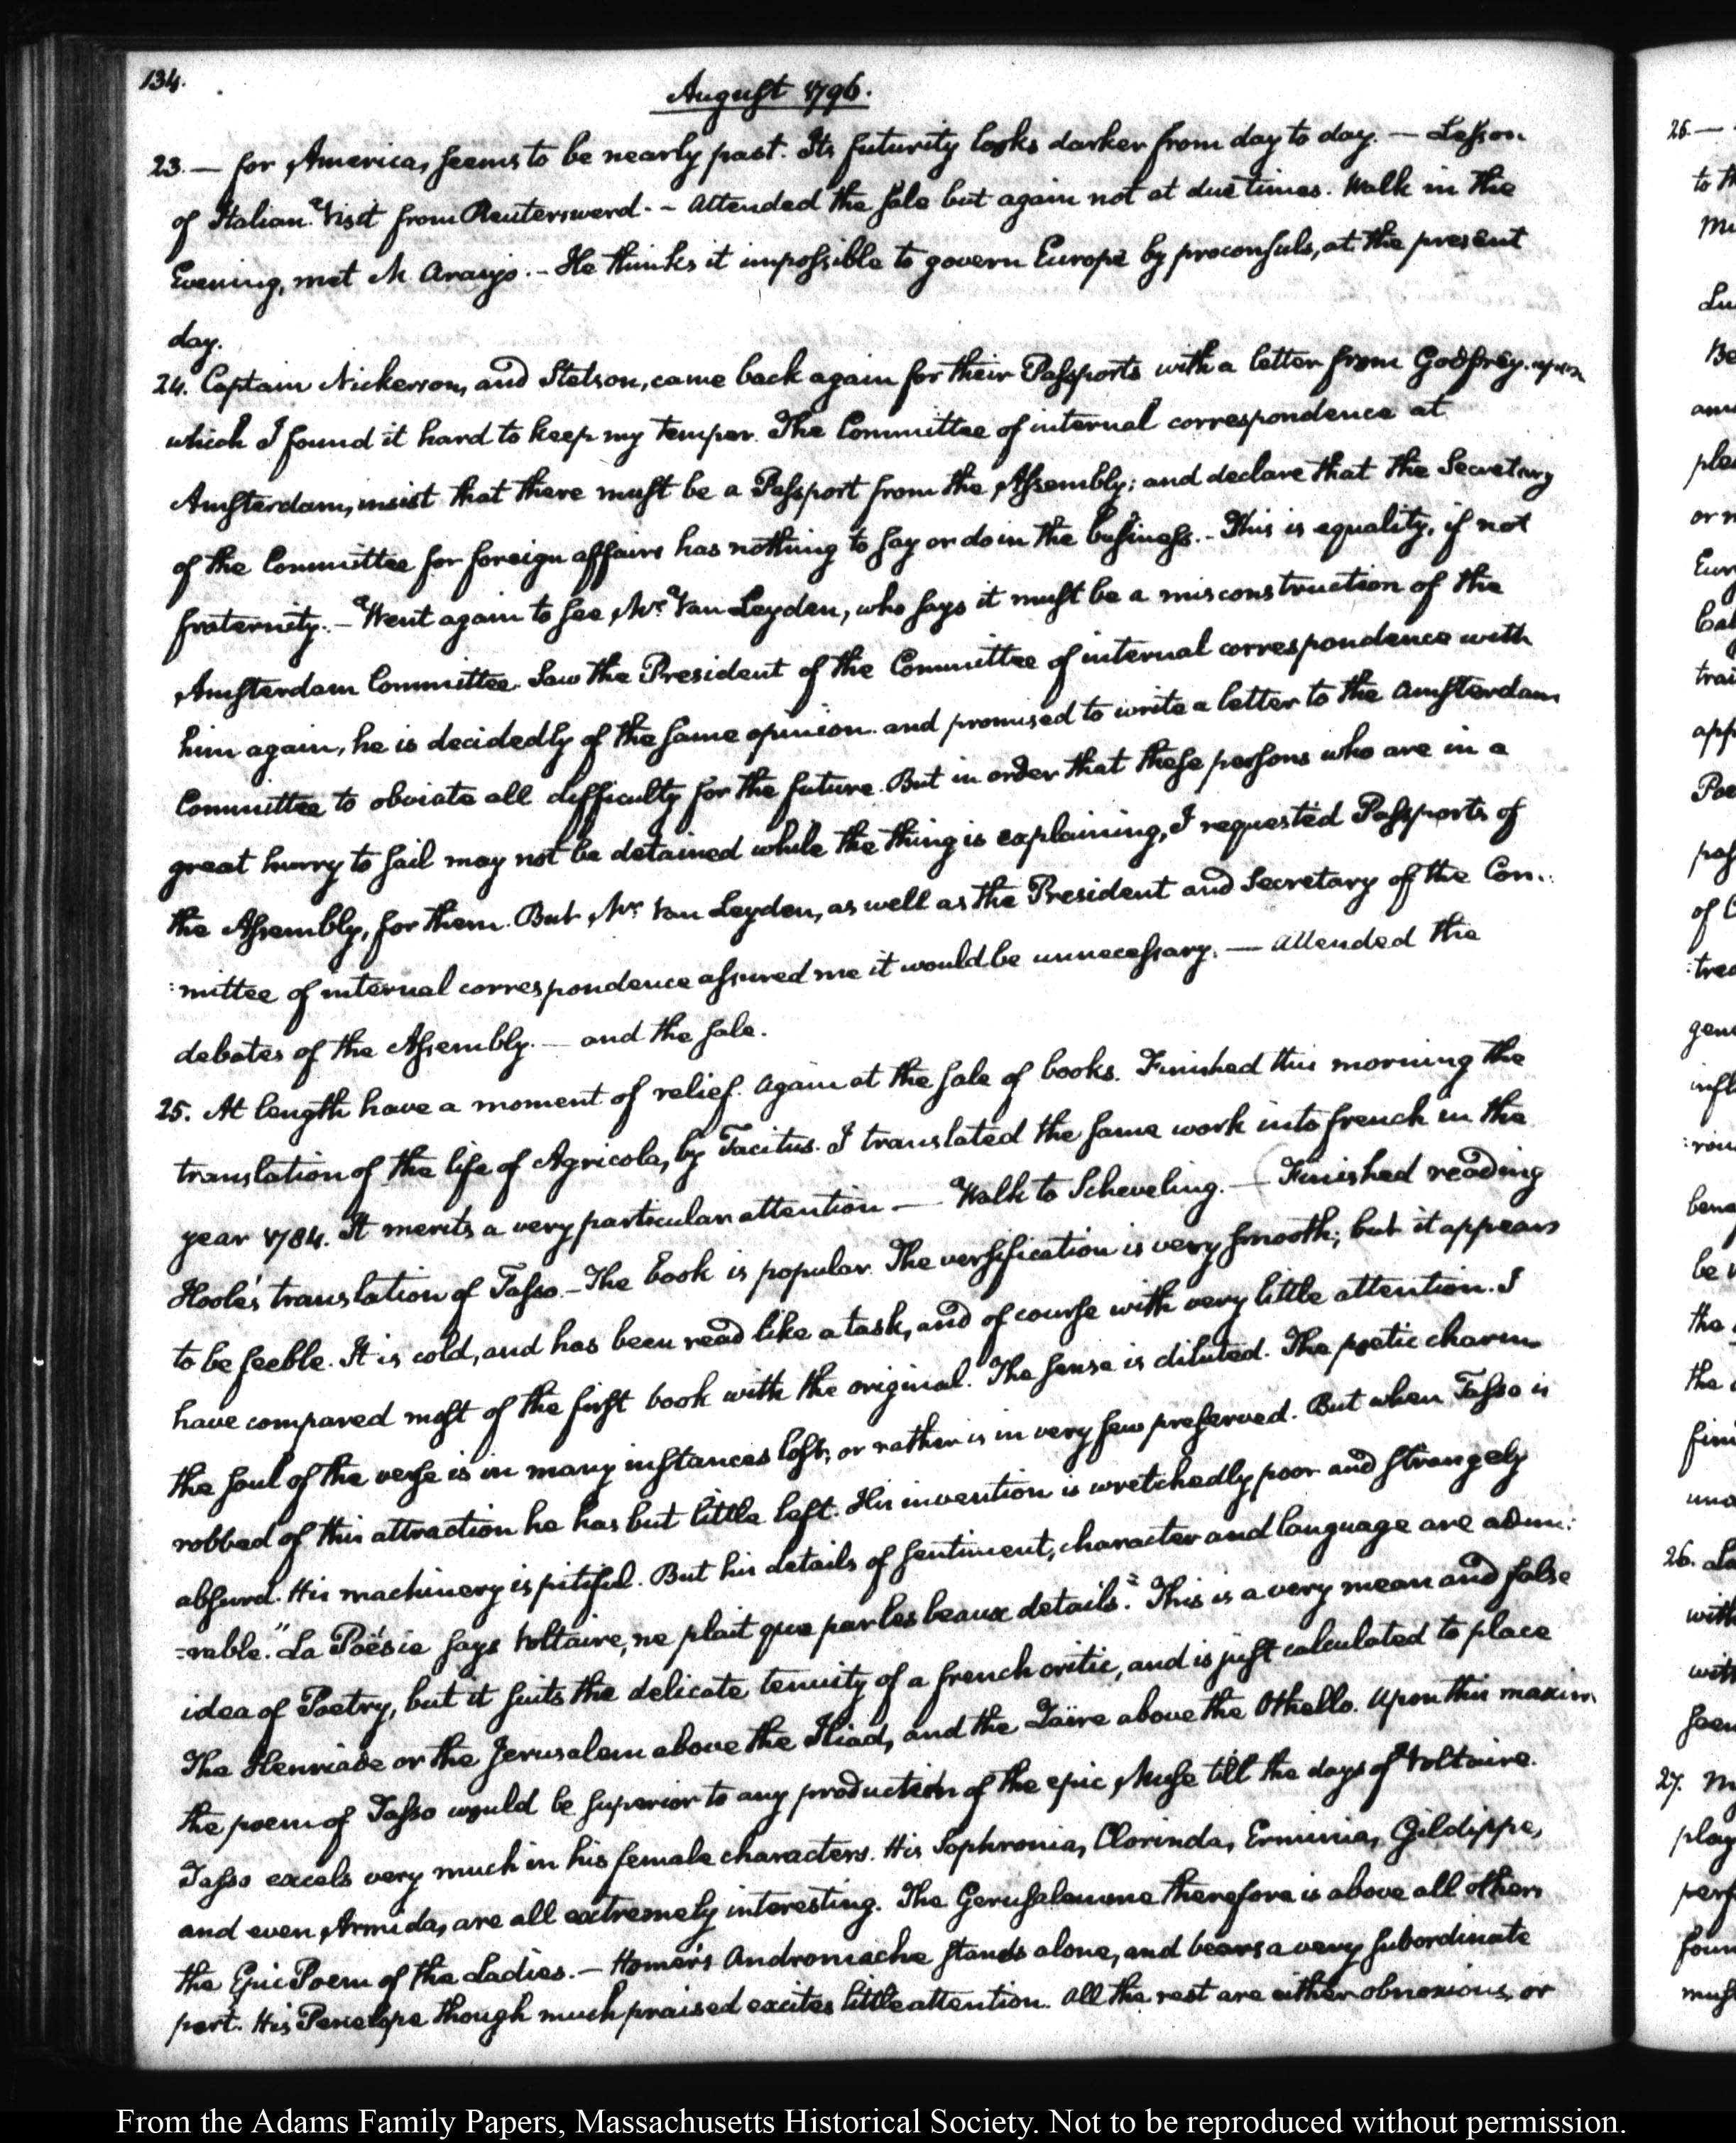 134.
August 1796.
23. — for America, seems to be nearly past. Its futurity looks darker from day to day. — Lesson
of Italian. Visit from Reuterswerd. - Attended the sale but again not at due times. Walk in the
Evening, met M. Araujo. - He thinks it impossible to govern Europe by proconsuls, at the present
day.
24. Captain Nickerson, and Stetson, came back again for their Passports with a letter from Godfrey. upon
which I found it hard to keep my temper. The Committee of internal correspondence at
Amsterdam, insist that there must be a Passport from the Assembly; and declare that the Secretary
of the Committee for foreign affairs has nothing to say or do in the business. - This is equality, if not
fraternity. - Went again to see Mr. Van Leyden, who says it must be a misconstruction of the
Amsterdam Committee. Saw the President of the Committee of internal correspondence with
him again, he is decidedly of the same opinion. and promised to write a letter to the Amsterdam
Committee to obviate all difficulty for the future. But in order that these persons who are in a
great hurry to sail may not be detained while the thing is explaining, I requested Passports of
the Assembly, for them. But Mr. Van Leyden, as well as the President and Secretary of the Com:
:mittee of internal correspondence assured me it would be unnecessary. — Attended the
debates of the Assembly. — and the sale.
25. At length have a moment of relief. Again at the sale of books. Finished this morning the
translation of the life of Agricola, by Tacitus. I translated the same work into french in the
year 1784. It merits a very particular attention — Walk to Scheveling. — Finished reading
Hoole's translation of Tasso. - The book is popular. The versification is very smooth; but it appears
to be feeble. It is cold, and has been read like a task, and of course with very little attention. I
have compared most of the first book with the original. The sense is diluted. The poetic charm
the soul of the verse is in many instances lost, or rather is in very few preserved. But when Tasso is
robbed of this attraction he has but little left. His invention is wretchedly poor and strangely
absurd. His machinery is pitiful. But his details of sentiment, character and language are admi:
-rable. "La Poësie says Voltaire, ne plait que par les beaux details." This is a very mean and false
idea of Poetry, but it suits the delicate tenuity of a french critic, and is just calculated to place
The Henriade or the Jerusalem above the Iliad, and the Zaïre above the Othello. Upon this maxim
the poem of Tasso would be superior to any production of the epic Muse till the days of Voltaire.
Tasso excels very much in his female characters. His Sophronia, Clorinda, Erminia, Gildippe,
and even Armida, are all extremely interesting. The Gerusalemme therefore is above all others
the Epic Poem of the Ladies. — Homer's Andromache stands alone, and bears a very subordinate
part. His Penelope though much praised excites little attention. All the rest are either obnoxious, or
26. —
to th
Lu
Be
ple
or n
Eur
trai
app
Poe
of C
:trea
gene
infl
bene
be
the
the
fin
una
26. La
with
with
seen
27. M
play
perf
foun
must
From the Adams Family Papers, Massachusetts Historical Society. Not to be reproduced without permission.